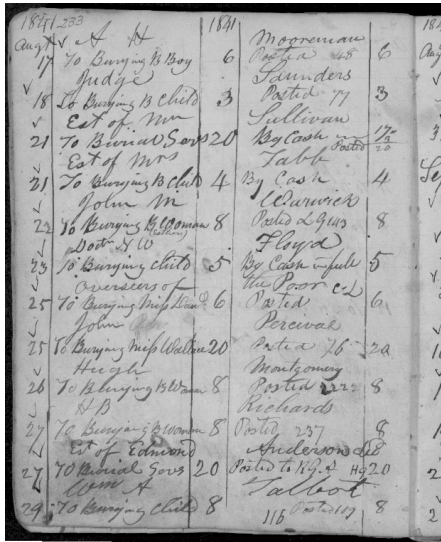 1841 233 1841
Augt A H Mooreman
17 To Burying B Boy 6 Posted 48 6
Judge Saunders
18 To Burying B Child 3 Posted 77 3
Est of Mrs Sullivan
21 To Burial Govs 20 By Cash 17 Posted 3 20
Est of Mrs Tabb
21 To Burying B Child 4 By Cash 4
John M Warwick
22 To Burying B Woman 8 Posted L G 143 8
Doctr N W Floyd
23 To Burying Child 5 By Cash in full 5
Overseers of the Poor C L
25 To Burying Miss 6 Posted 6
John Percival
25 To Burying Miss Wallace 20 Posted 76 20
Hugh Montgomery
26 To Burying B Woman 8 Posted 222 8
H B Richards
27 To Burying B Woman 8 Posted 237 8
Est of Edmond Anderson
27 To Burial Govs 20 Posted to 20
Wm A Talbot
29 To Burying Child 8 116 Posted 117 8